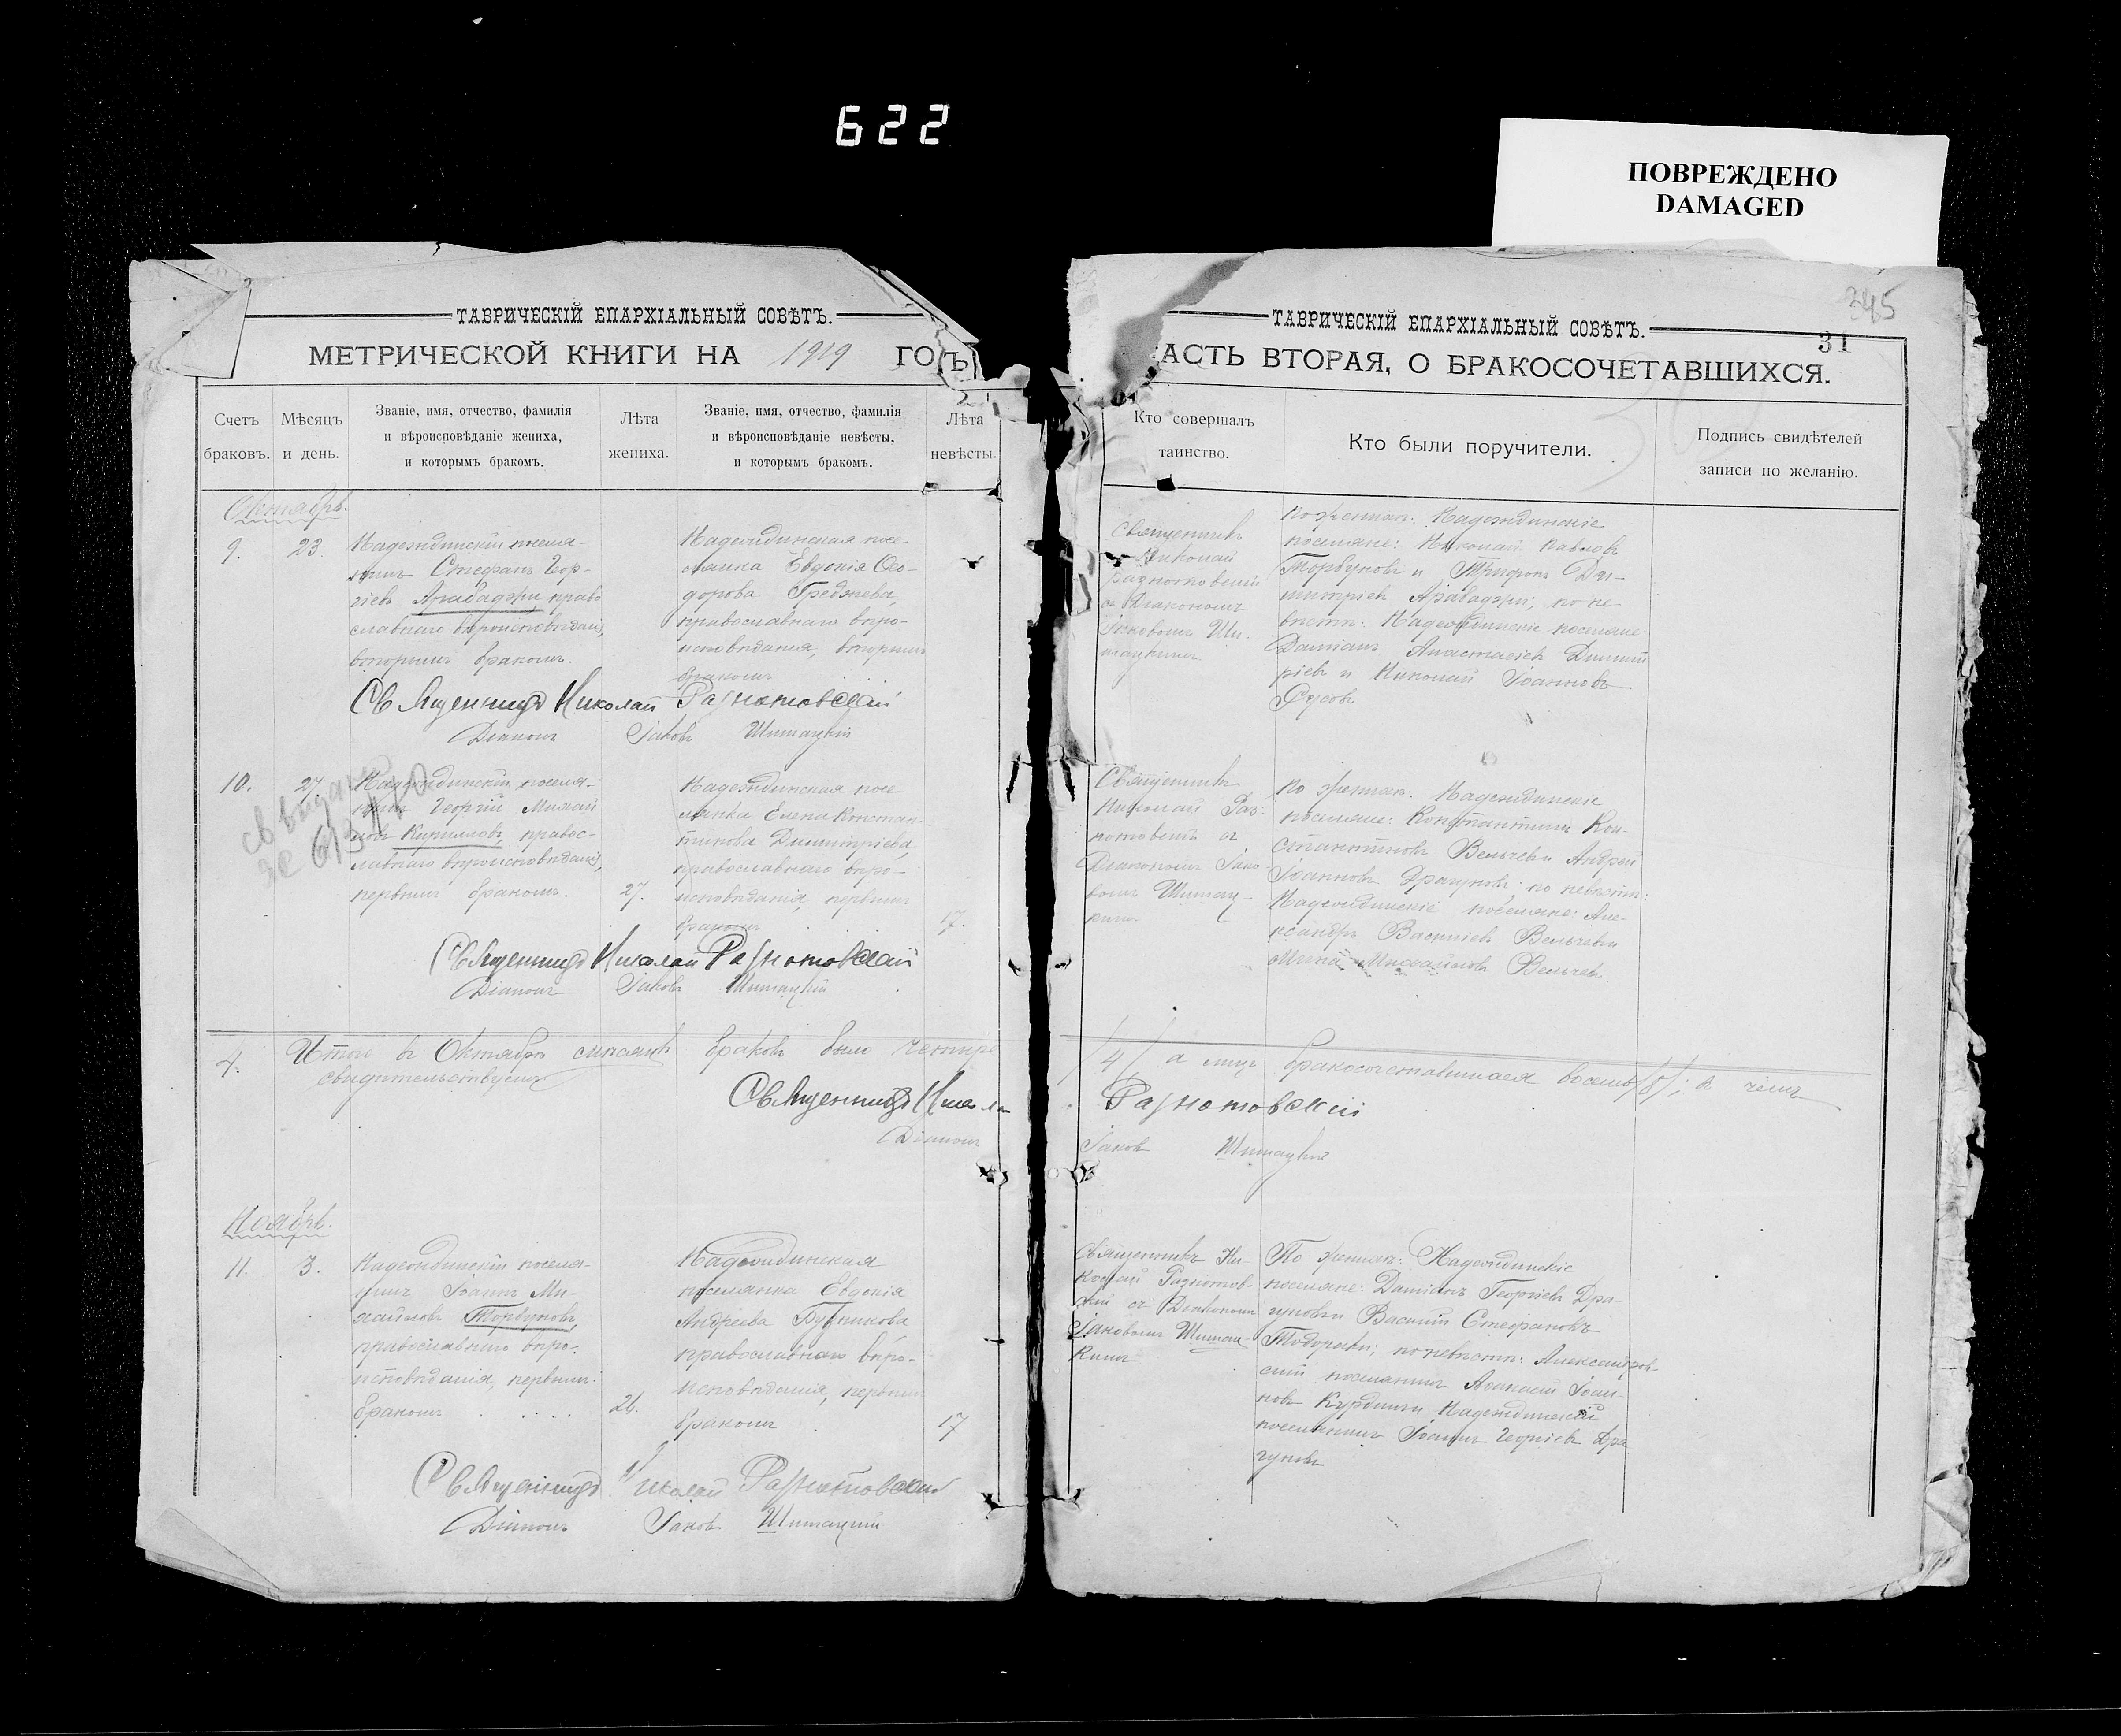 622
ПОВРЕЖДЕНО
DAMAGED
ТАВРИЧЕСКІЙ ЕПАРХІАЛЬНЫЙ СОВѢТЪ.
МЕТРИЧЕСКОЙ КНИГИ НА 1919 ГОДЪ
Счетъ браковъ.
Мѣсяцъ и день.
Званіе, имя, отчество, фамилія
и вѣроисповѣданіе жениха,
и которымъ бракомъ.
Лѣта
жениха.
Званіе, имя, отчество, фамилія
и вѣроисповѣданіе невѣсты,
и которымъ бракомъ.
Лѣта
невѣсты.
Октябрь.
9.
23.
Надеждинскій поселя-
нинъ Стефанъ Геор-
гіевъ Арабаджи право
славнаго вѣроисповѣданія,
вторымъ бракомъ.
Надеждинская посе-
лянка Евдокія Ѳео-
дорова
православнаго вѣро-
исповѣданія, вторымъ
бракомъ
Священникъ Николай Разнотовскій
Діаконъ Іаковъ Шитацкій
10.
27.
Надеждинскій поселя-
нинъ Георгій Михай
ловъ Кирилловъ, правос-
лавнаго вѣроисповѣданія,
первымъ бракомъ.
27.
Надеждинская посе-
лянка Елена Констан-
тинова Димитріева,
православнаго вѣро-
исповѣданія, первымъ
бракомъ
17.
Священникъ Николай Разнотовскій
Діаконъ Іаковъ Шитацкій
4.
Итого въ Октябрѣ мѣсяцѣ браковъ было четыре
свидѣтельствуемъ
Священникъ Никола
Діаконъ
Ноябрь.
11.
3.
Надеждинскій поселя-
нинъ Іоаннъ Ми-
хайловъ Торбуновъ,
православнаго вѣро-
исповѣданія, первымъ
бракомъ
26.
Надеждинская
поселянка Евдокія
Андреева
православнаго вѣро-
исповѣданія, первымъ
бракомъ
17
Священникъ Николай Разнотовскій
Діаконъ Іаковъ Шитацкій
345
ТАВРИЧЕСКІЙ ЕПАРХІАЛЬНЫЙ СОВѢТЪ.
31
АСТЬ ВТОРАЯ, О БРАКОСОЧЕТАВШИХСЯ.
Кто совершалъ
таинство.
Кто были поручители.
Подпись свидѣтелей
записи по желанію.
Священникъ
Николай
Разнотовскій
съ Діакономъ
Іаковомъ Ши-
тацкимъ
По женихѣ: Надеждинскіе
поселяне: Николай Павловъ
Торбуновъ и Трифонъ Ди-
митріевъ Арабаджи; по не-
вѣстѣ: Надеждинскіе поселяне
Даміанъ Анастасіевъ Димит
ріевъ и Николай Іоанновъ
Русовъ
Священникъ
Николай Раз-
нотовскій съ
Діакономъ Іако
вомъ Шитац-
кимъ
По женихѣ: Надеждинскіе
поселяне: Константинъ Кон-
стантиновъ Вельчевъ и Андрей
Іоанновъ Драгуновъ; по невѣстѣ:
Надеждинскіе поселяне: Але-
ксандръ Василіевъ Вельчевъ и
Михайловъ Вельчевъ.
/4/ а лицъ бракосочетавшихся восемь /8/; въ чемъ
Разнотовскій
Іаковъ Шитацкій
Священникъ Ни-
колай Разнотов-
скій съ Діакономъ
Іаковомъ Шитац-
кимъ
По женихѣ: Надеждинскіе
поселяне: Даміанъ Георгіевъ Дра-
гуновъ и Василій Стефановъ
Тодоровъ; по невѣстѣ: Александров-
скій поселянинъ Аѳанасій Іоан-
новъ Курдогли Надеждинскій
поселянинъ Іоаннъ Георгіевъ Дра
гуновъ